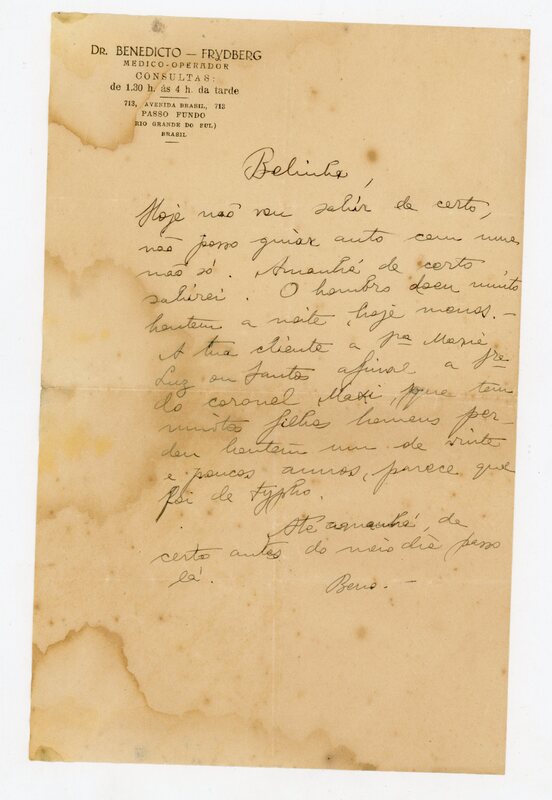 DR. BENEDICTO — FRYDBERG
MEDICO-OPERADOR
CONSULTAS:
de 1.30 h. ás 4 h. da tarde
713, AVENIDA BRASIL, 713
PASSO FUNDO
RIO GRANDE DO SUL)
BRASIL
Belinha,
Hoje não vou sahir de certo,
não posso guiar auto com uma
mão só. Amanhã de certo
sahirei. O hombro doeu muito
hontem a noite, hoje menos. —
A tua cliente a
Luz ou Santos afinal a
do coronel Maxi, que tem
muitos filhos homens per-
deu hontem um de vinte
e poucos annos, parece que
foi de typho.
Até amanhã, de
certo antes do meio dia passo
lá.
Beno. —